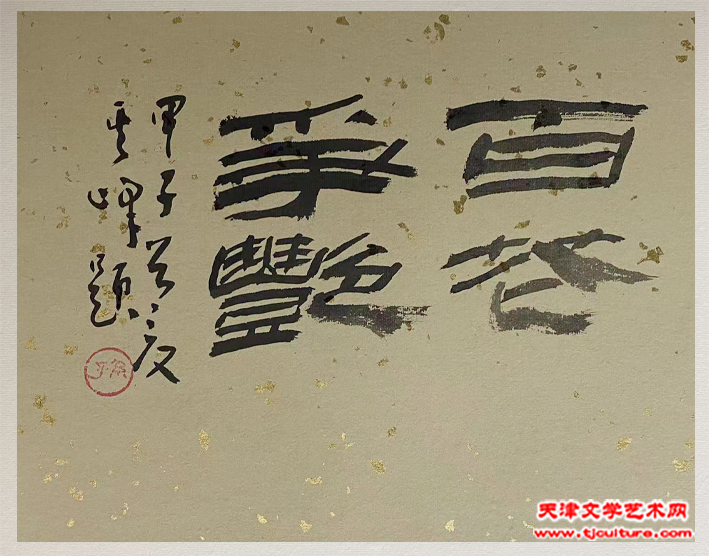 百花
爭艷
甲子
峰題
天津文学艺术网
www.tjculture.com